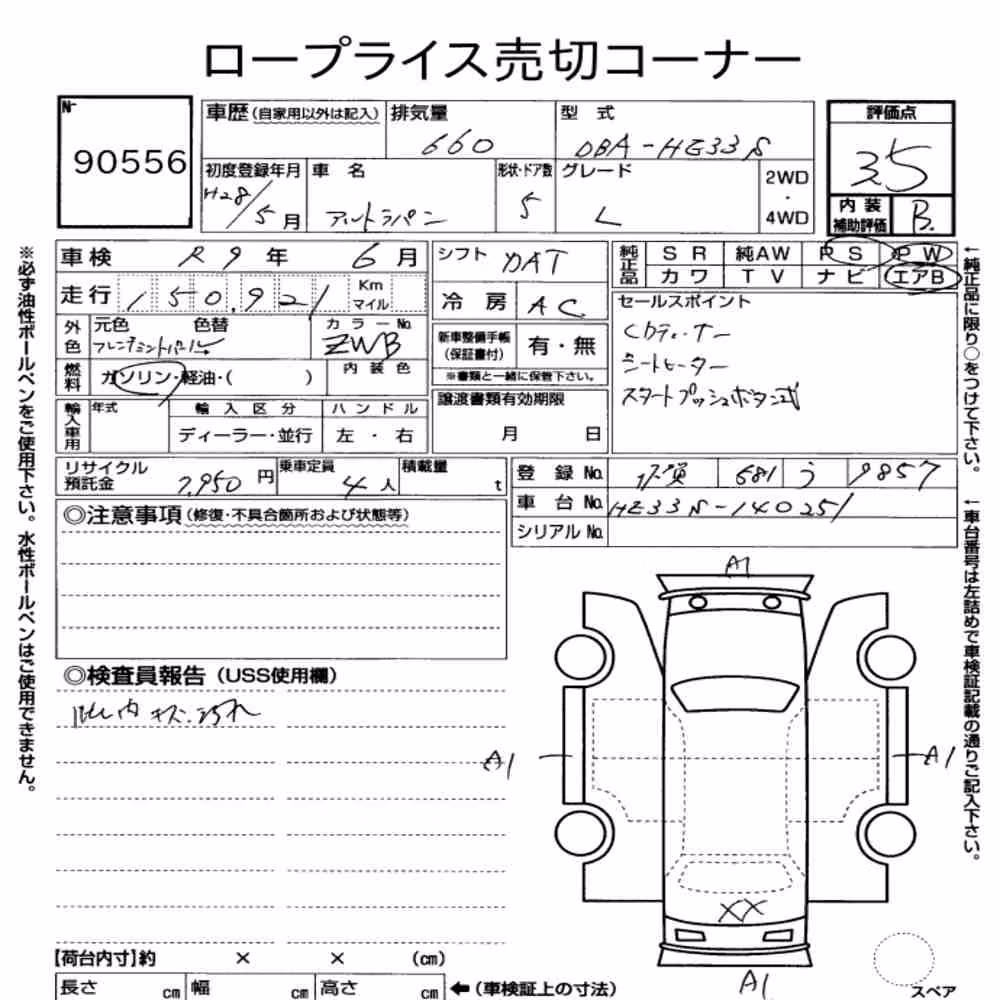 ロープライス売切コーナー
№ 90556
車歴(自家用以外は記入) 排気量 660 型式 DBA-HE33S
評価点 3.5
初度登録年月 H28/5月 車名 アルトラパン 形状・ドア数 5 グレード L 2WD・4WD
内装補助評価 B
車検 R9年 6月
走行 150,921 Km マイル
外色 元色 フレンチミントパール 色替 カラーNo. ZWB
燃料 ガソリン・軽油・( ) 内装色
輸入車用 年式 輸入区分 ディーラー・並行 ハンドル 左・右
シフト DAT
冷房 AC
新車整備手帳(保証書付) 有・無
※書類と一緒に保管下さい。
譲渡書類有効期限
月 日
純正品 SR 純AW PS PW
カワ TV ナビ エアB
セールスポイント
CDチューナー
シートヒーター
スタートプッシュボタン式
リサイクル預託金 7,950円 乗車定員 4人 積載量 t
登録No. 681 う 9857
車台No. HE33S-140251
シリアルNo.
◎注意事項(修復・不具合箇所および状態等)
◎検査員報告(USS使用欄)
内 キズ、汚れ
A1
A1
A1
XX
A1
【荷台内寸】約 × × (cm)
長さ cm 幅 cm 高さ cm ←(車検証上の寸法)
スペア
※必ず油性ボールペンをご使用下さい。水性ボールペンはご使用できません。
←純正品に限り○をつけて下さい。
←車台番号は左詰めで車検証記載の通りご記入下さい。